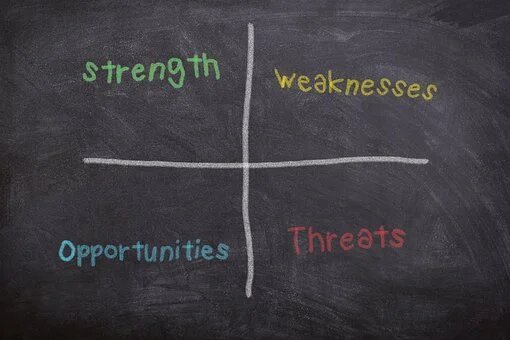 strength
weaknesses
Opportunities
Threats